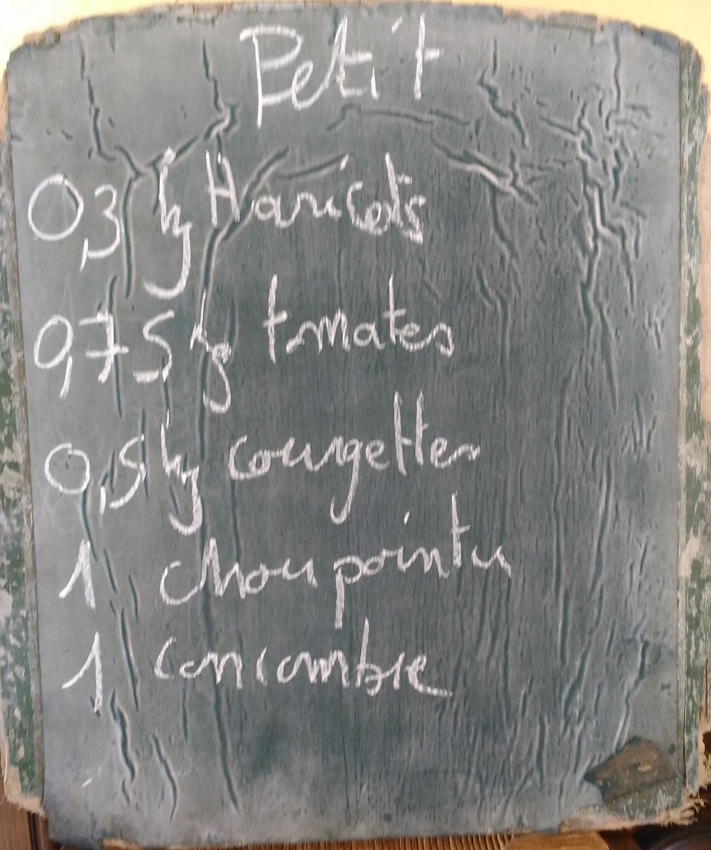 Petit
0,3 kg Haricots
0,75 kg tomates
0,5 kg courgettes
1 chou pointu
1 concombre